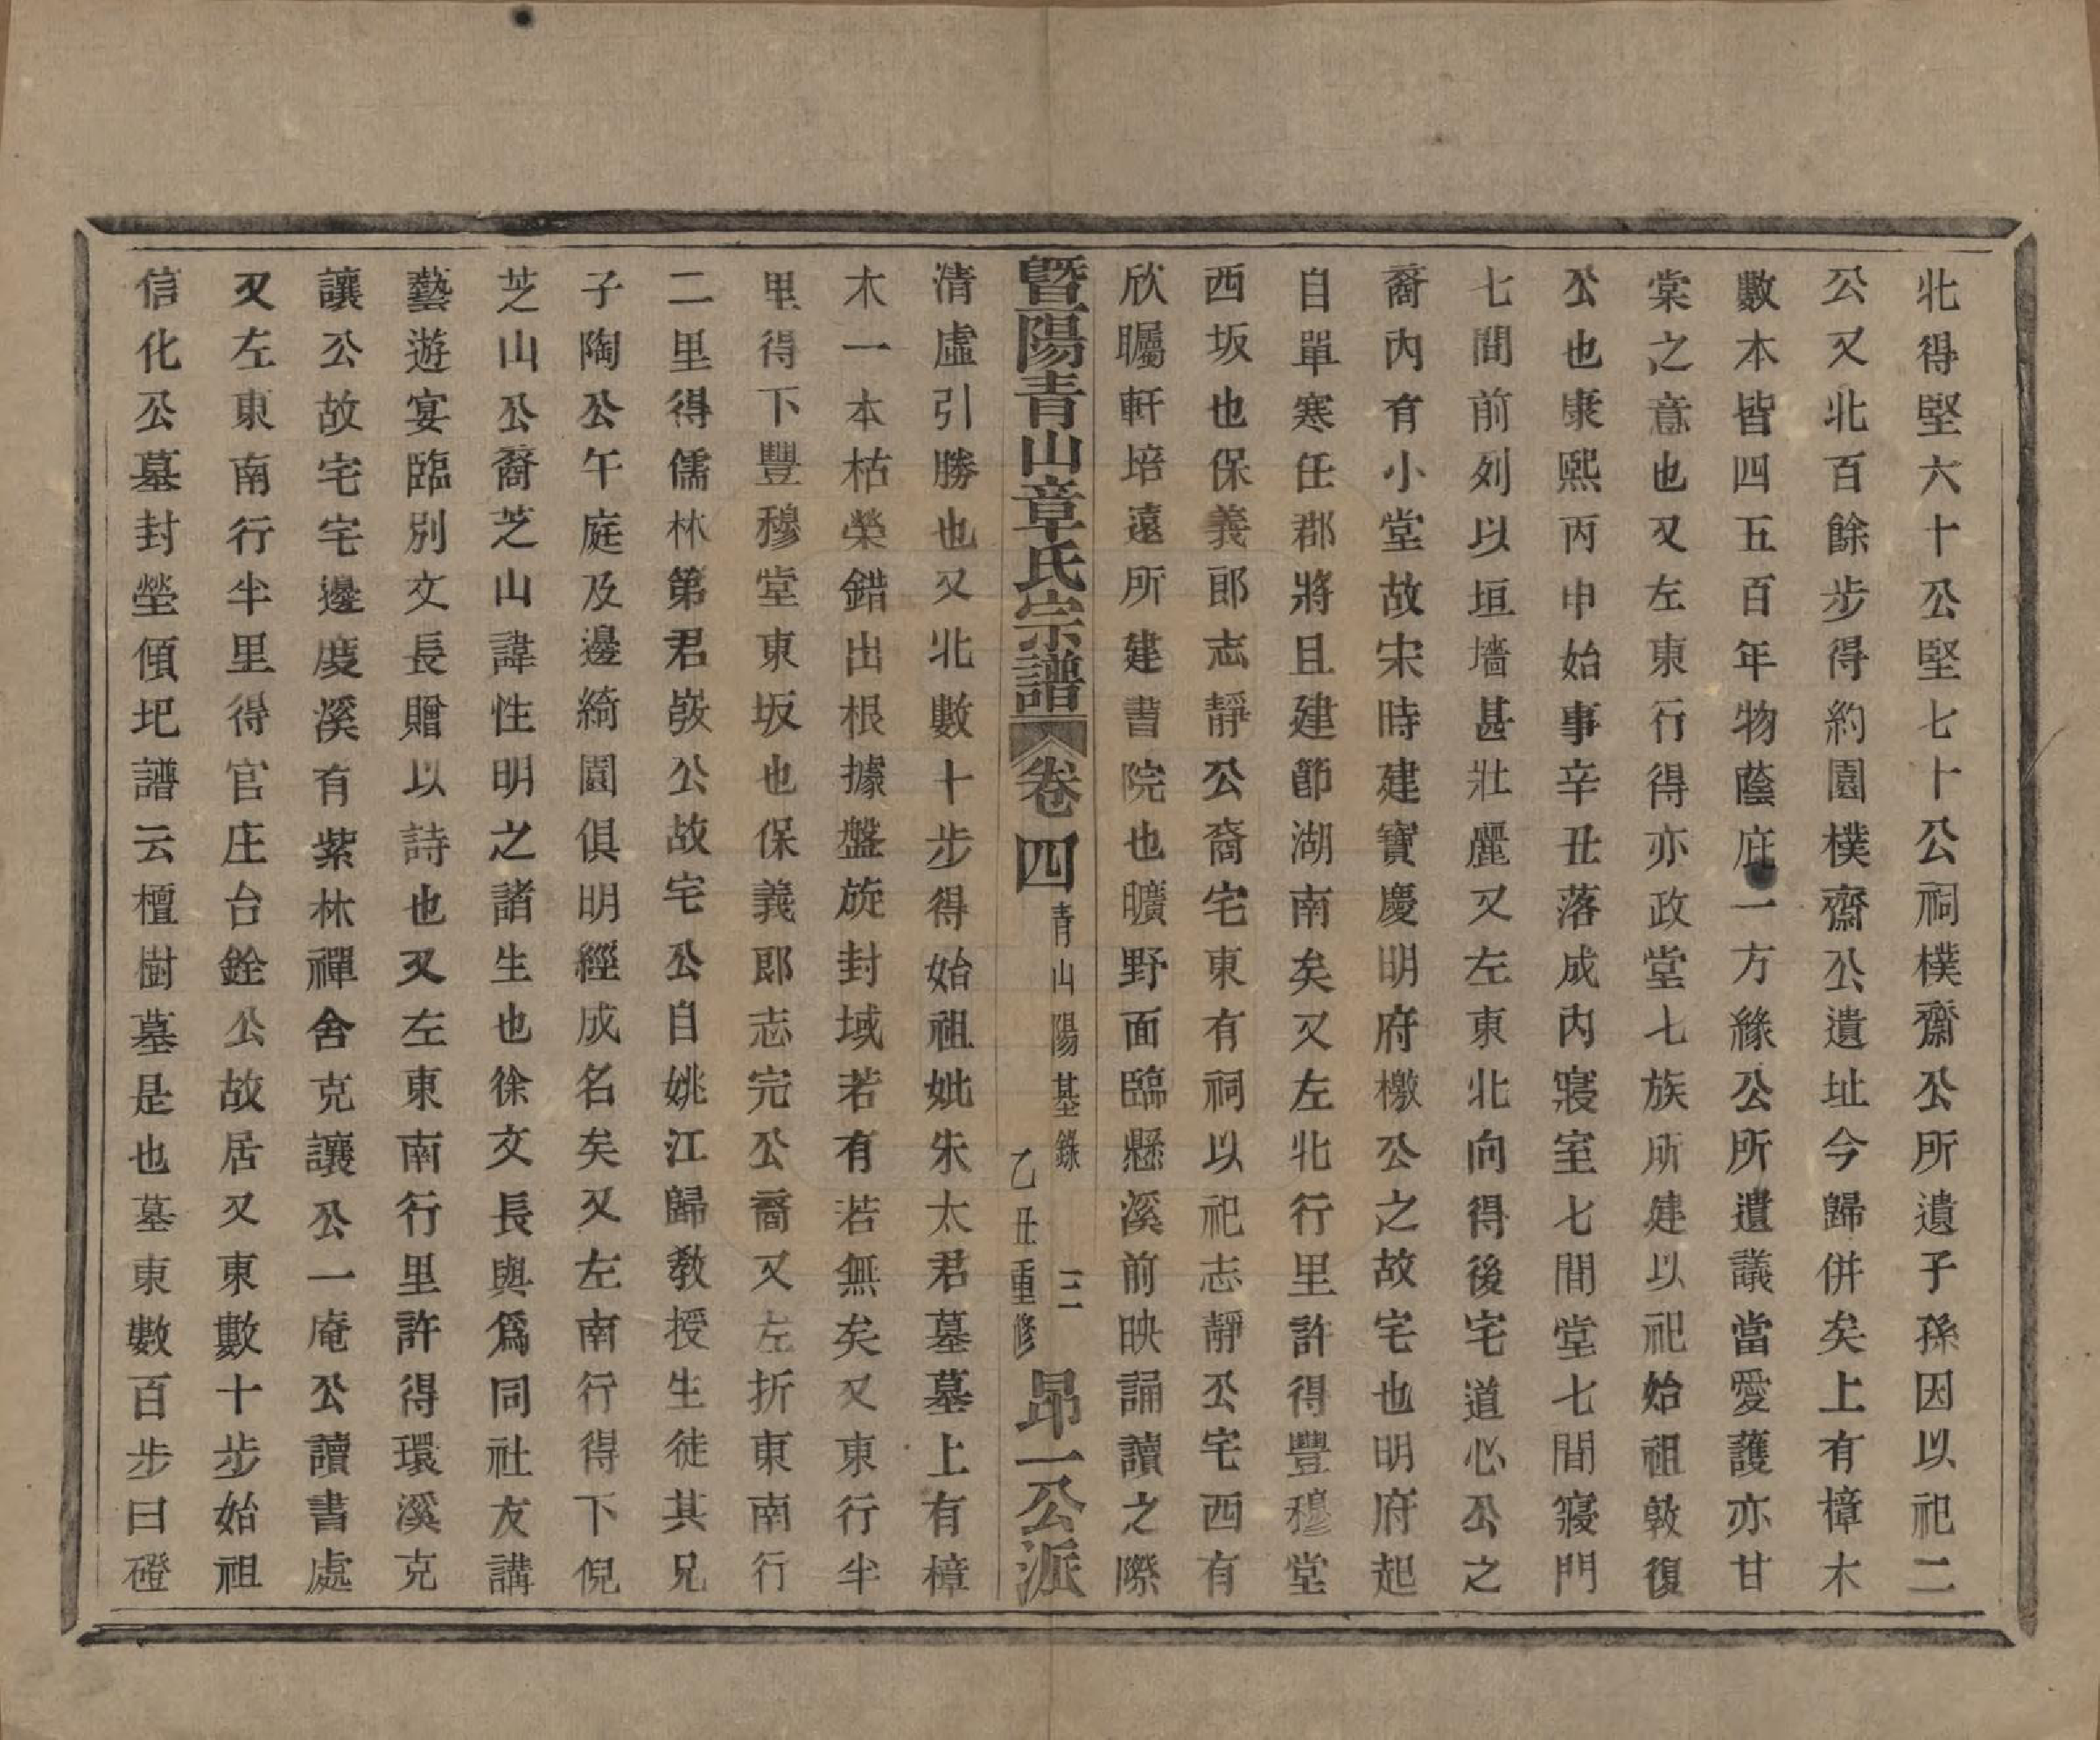 北得堅六十公堅七十公祠樸齋公所遺子孫因以祀二
公又北百餘步得約園樸齋公遺址今歸併矣上有樟木
數本皆四五百年物蔭庇一方緣公所遺議當愛護亦甘
棠之意也又左東行得亦政堂七族所建以祀始祖敦復
公也康熙丙申始事辛丑落成內寢室七間堂七間寢門
七間前列以垣墻甚壯麗又左東北向得後宅道心公之
裔內有小堂故宋時建寶慶明府檄公之故宅也明府起
自單寒任郡將且建節湖南矣又左北行里許得豐穆堂
西坂也保義郎志靜公裔宅東有祠以祀志靜公宅西有
欣矚軒培遠所建書院也曠野面臨懸溪前映誦讀之際
暨陽青山章氏宗譜 卷四 青山陽基錄 三 乙丑重修 昻一公派
清虛引勝也又北數十步得始祖妣朱太君墓墓上有樟
木一本枯榮錯出根據盤旋封域若有若無矣又東行半
里得下豐穆堂東坂也保義郎志完公裔又左折東南行
二里得儒林第君敭公故宅公自姚江歸教授生徒其兄
子陶公午庭及邊綺園俱明經成名矣又左南行得下倪
芝山公裔芝山諱性明之諸生也徐文長與爲同社友講
藝遊宴臨別文長贈以詩也又左東南行里許得環溪克
讓公故宅宅邊度溪有紫林禪舍克讓公一庵公讀書處
又左東南行半里得官庄台銓公故居又東數十步始祖
信化公墓封塋傾圯譜云檀樹墓是也墓東數百步曰磴